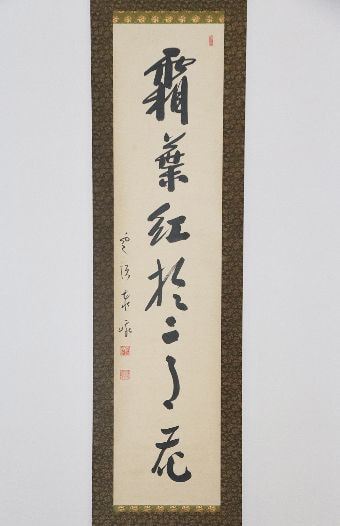 霜葉紅於二月花